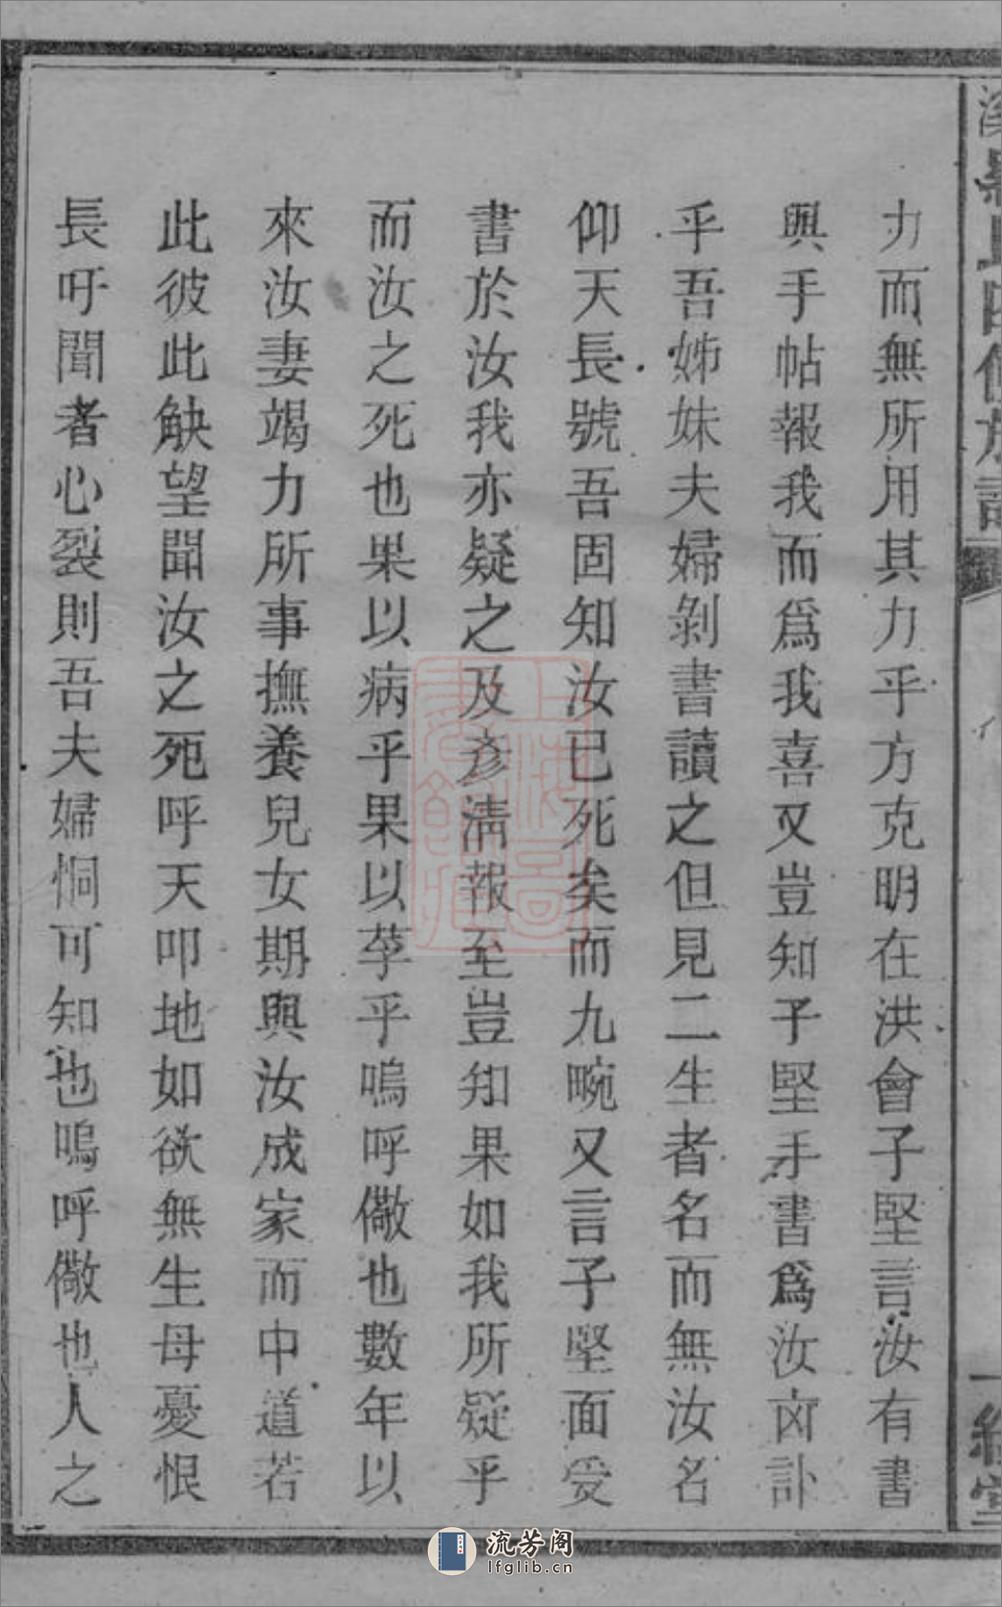 力而無所用其力乎方克明在洪會子堅言汝有書
與手帖報我而爲我喜又豈知子堅手書爲汝凶訃
乎吾姊妹夫婦剝書讀之但見二生者名而無汝名
仰天長號吾固知汝已死矣而九畹又言子堅面受
書於汝我亦疑之及彥淸報至豈知果如我所疑乎
而汝之死也果以病乎果以莩乎嗚呼儆也數年以
來汝妻竭力所事撫養兒女期與汝成家而中道若
此彼此觖望聞汝之死呼天叩地如欲無生母憂恨
長吁聞者心裂則吾夫婦恫可知也嗚呼儆也人之
上海圖書館藏
流芳阁
lfglib.cn